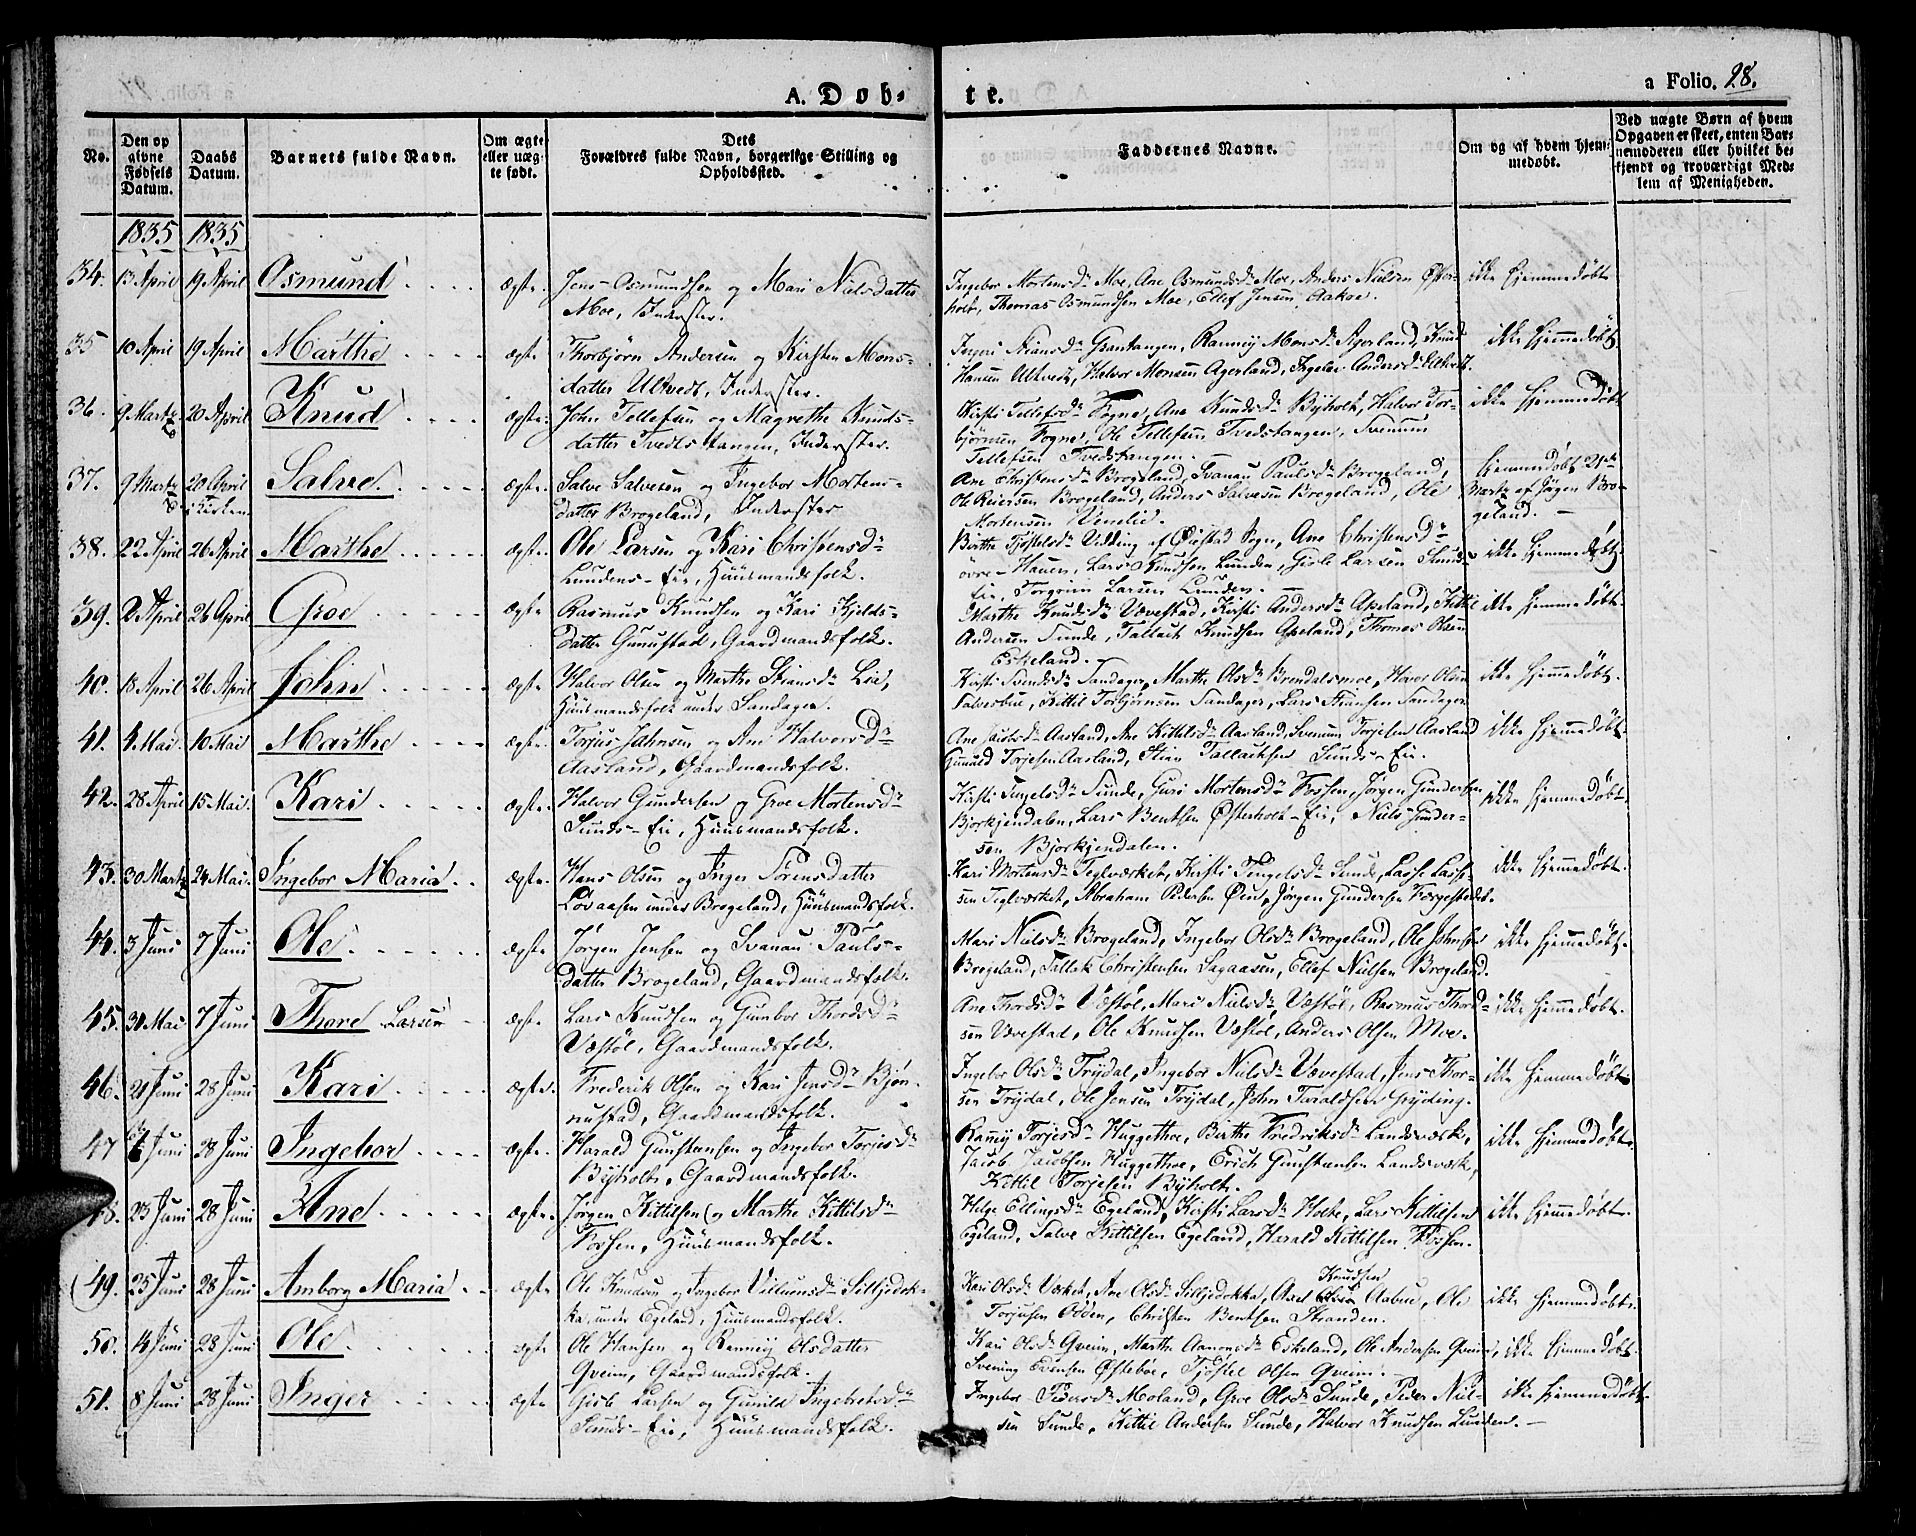 A. Døb-
te.
a Folio. 28.
No.
Den op
givne
Fødsels
Datum.
Daabs
Datum.
Barnets fulde Navn.
Om ægte
eller uæg-
te født.
Dets
Forældres fulde Navn, borgerlige Stilling og
Opholdssted.
Faddernes Navne.
Om og af hvem hjem-
medøbt.
Ved uægte Børn af hvem
Opgaven er skeet, enten Bar-
nemoderen eller hvilket be-
kjendt og troværdigt Med-
lem af Menigheden.
1835 1835
34. 13 April 19 April Osmund ægte. Jens Osmundsen og Mari Nielsdatter
Moe, Inderster.
Ingebor Mortensdr Moe, Ane Osmundsdr Moe, Anders Nielsen Øster-
holt, Thomas Osmundsen Moe, Ellef Jensen Aakoe.
ikke hjemmedøbt
35 10 April 19 April Marthe ægte Thorbjørn Andersen og Kirsten Mons-
datter Ulltvedt, Inderster.
Ingeri Stiansdr Grantangen, Rannei Monsdr Agerland, Knud
Hansen Ulltvedt, Halvor Monsen Agerland, Ingelev Andersdr Ulltvedt.
ikke hjemmedøbt.
36. 9 Martz 20 April Knud ægte. John Tellefsen og Magrethe Knuds-
datter Tvedtstangen, Inderster.
Kirsti Tellefsdr Fogne, Ane Knudsdr Byholt, Halvor Tor-
bjørnsen Fogne, Ole Tellefsen Tvedstangen, Svenum
Tellefsen Tvedstangen.
ikke hjemmedøbt
37. 9 Martz 20 April
i Kirken Salve ægte. Salve Salvesen og Ingebor Mortens-
datter Brogeland, Inderster
Ane Christensdr Brogeland, Svanau Paulsdr Brogeland,
Ole Reiersen Brogeland, Anders Salvesen Brogeland, Ole
Mortensen Venelie.
hjemmedøbt 21de
Martz af Jørgen Bro-
geland.
38. 22 April 26 April Marthe ægte. Ole Larsen og Kari Christensdr
Lundens-Eie, Huusmandsfolk.
Birthe Tjøstelsdr Vilding af Øiestad Sogn, Ane Christensdr
øvre-Hauen, Lars Knudsen Lunden, Gisle Larsen Sunds-
Eie, Torgrim Larsen Lunden.
ikke hjemmedøbt
39. 2 April 26 April Groe ægte Rasmus Knudsen og Kari Kjelds-
datter Gunustad, Gaardmandsfolk.
Marthe Knudsdr Vævestad, Kirsti Andersdr Apeland, Kittil
Andersen Sunde, Tallach Knudsen Apeland, Thomas Olsen
Eskeland.
ikke hjemmedøbt.
40. 13 April 26 April John ægte Halvor Olsen og Marthe Stiansdr Lie,
Huusmandsfolk under Sandager.
Kirsti Svendsdr Sandager, Marthe Olsdr Brendalsmoe, Havor Olsen
Salvesbu, Kittil Torbjørnsen Sandager, Lars Stiansen Sandager
ikke hjemmedøbt.
41. 4 Mai 10 Mai Marthe ægte. Torjus Jahnsen og Ane Halvorsdr
Aasland, Gaardmandsfolk.
Ane Aasland, Ane Kittilsdr Aasland, Svenum Torjesen Aasland
Gunuld Torjesen Aasland, Stian Tallachsen Sunds-Eie.
ikke hjemmedøbt.
42. 28 April 15 Mai. Kari ægte. Halvor Gundersen og Groe Mortensdr
Sunds-Eie, Huusmandsfolk.
Kirsti Tengelsdr Sunde, Guri Mortensdr Fossen, Jørgen Gundersen
Bjorkjendalen, Lars Bentsen Østerholt-Eie, Niels Gunder-
sen Bjorkjendalen.
ikke hjemmedøbt.
43. 30 Martz 24 Mai. Ingebor Maria ægte. Hans Olsen og Inger Sørensdatter
Løvaasen under Brogeland, Huusmandsfolk.
Kari Mortensdr Teglværket, Kirsti Tengelsdr Sunde, Lasse Lass-
sen Teglværket, Abraham Pedersen Øen, Jørgen Gundersen Færgestedet.
ikke hjemmedøbt.
44. 3 Juni 7 Juni Ole ægte. Jørgen Jensen og Svanau Pauls-
datter Brogeland, Gaardmandsfolk.
Mari Nielsdr Brogeland, Ingebor Olsdr Brogeland, Ole Johnsen
Brogeland, Tallak Christensen Lagaasen, Ellef Nielsen Brogeland.
ikke hjemmedøbt.
45. 31 Mai 7 Juni Thore Larsen ægte. Lars Knudsen og Gunbor Thordsdr
Væstøl, Gaardmandsfolk.
Ane Thordsdr Væstøl, Mari Nielsdr Væstøl, Rasmus Thord-
sen Vævestad, Ole Knudsen Væstøl, Anders Olsen Moe.
ikke hjemmedøbt.
46. 21 Juni 28 Juni Kari ægte. Frederik Olsen og Kari Jensdr Bjøn-
nustad, Gaardmandsfolk.
Ingebor Olsdr Trydal, Ingebor Nielsdr Vævestad, Jens Thor-
sen Trydal, Ole Jensen Trydal, John Taraldsen Gryting.
ikke hjemmedøbt
47 6 Juni 28 Juni Ingebor ægte. Harald Gunstensen og Ingebor Torjesdr
Byholt, Gaardmandsfolk.
Rannei Torjesdr Huggethoe, Birthe Fredriksdr Landsværk,
Jacob Jacobsen Huggethoe, Erich Gunstensen Landsværk,
Kittil Torjesen Byholt.
ikke hjemmedøbt.
48. 23 Juni 28 Juni Ane ægte. Jørgen Kittilsen og Marthe Kittilsdr
Fossen, Huusmandsfolk.
Helge Ellingsdr Egeland, Kirsti Larsdr Holte, Lars Kittilsen
Egeland, Salve Kittilsen Egeland, Harald Kittilsen Fossen.
ikke hjemmedøbt.
49. 25 Juni 28 Juni Amborg Maria ægte. Ole Knudsen og Ingebor Villumsdr Silljedok-
ka, under Egeland, Huusmandsfolk.
Knudsen
Kari Olsdr Værket, Ane Olsdr Silljedokka, Axel Olsen Aabue, Ole
Torjusen Odden, Christen Bentsen Stranden.
ikke hjemmedøbt.
50. 14 Juni 28 Juni Ole ægte. Ole Hansen og Rannei Olsdatter
Gveim, Gaardmandsfolk.
Kari Olsdr Gveim, Marthe Aanonsdr Eskeland, Ole Andersen Gveim,
Svening Evensen Østebøe, Tjøstel Olsen Gveim.
ikke hjemmedøbt
51. 8 Juni 28 Juni Inger ægte Gisle Larsen og Gunild Ingebretsdr
Sunds-Eie, Huusmandsfolk.
Ingebor Moland, Groe Olsdr Sunde, Peder Niel-
sen Sunde, Kittil Andersen Sunde, Halvor Knudsen Lunden.
ikke hjemmedøbt.